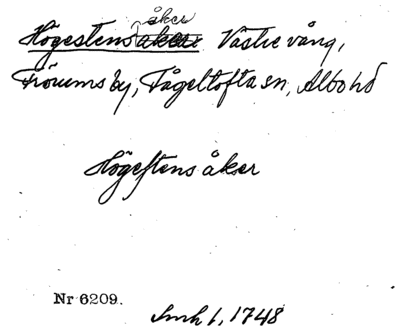 Högestens åker Västre vång,
Fröriems by, Fågeltofta sn, Albo hd
Högestens åker
Nr 6209.
Smh 1, 1748